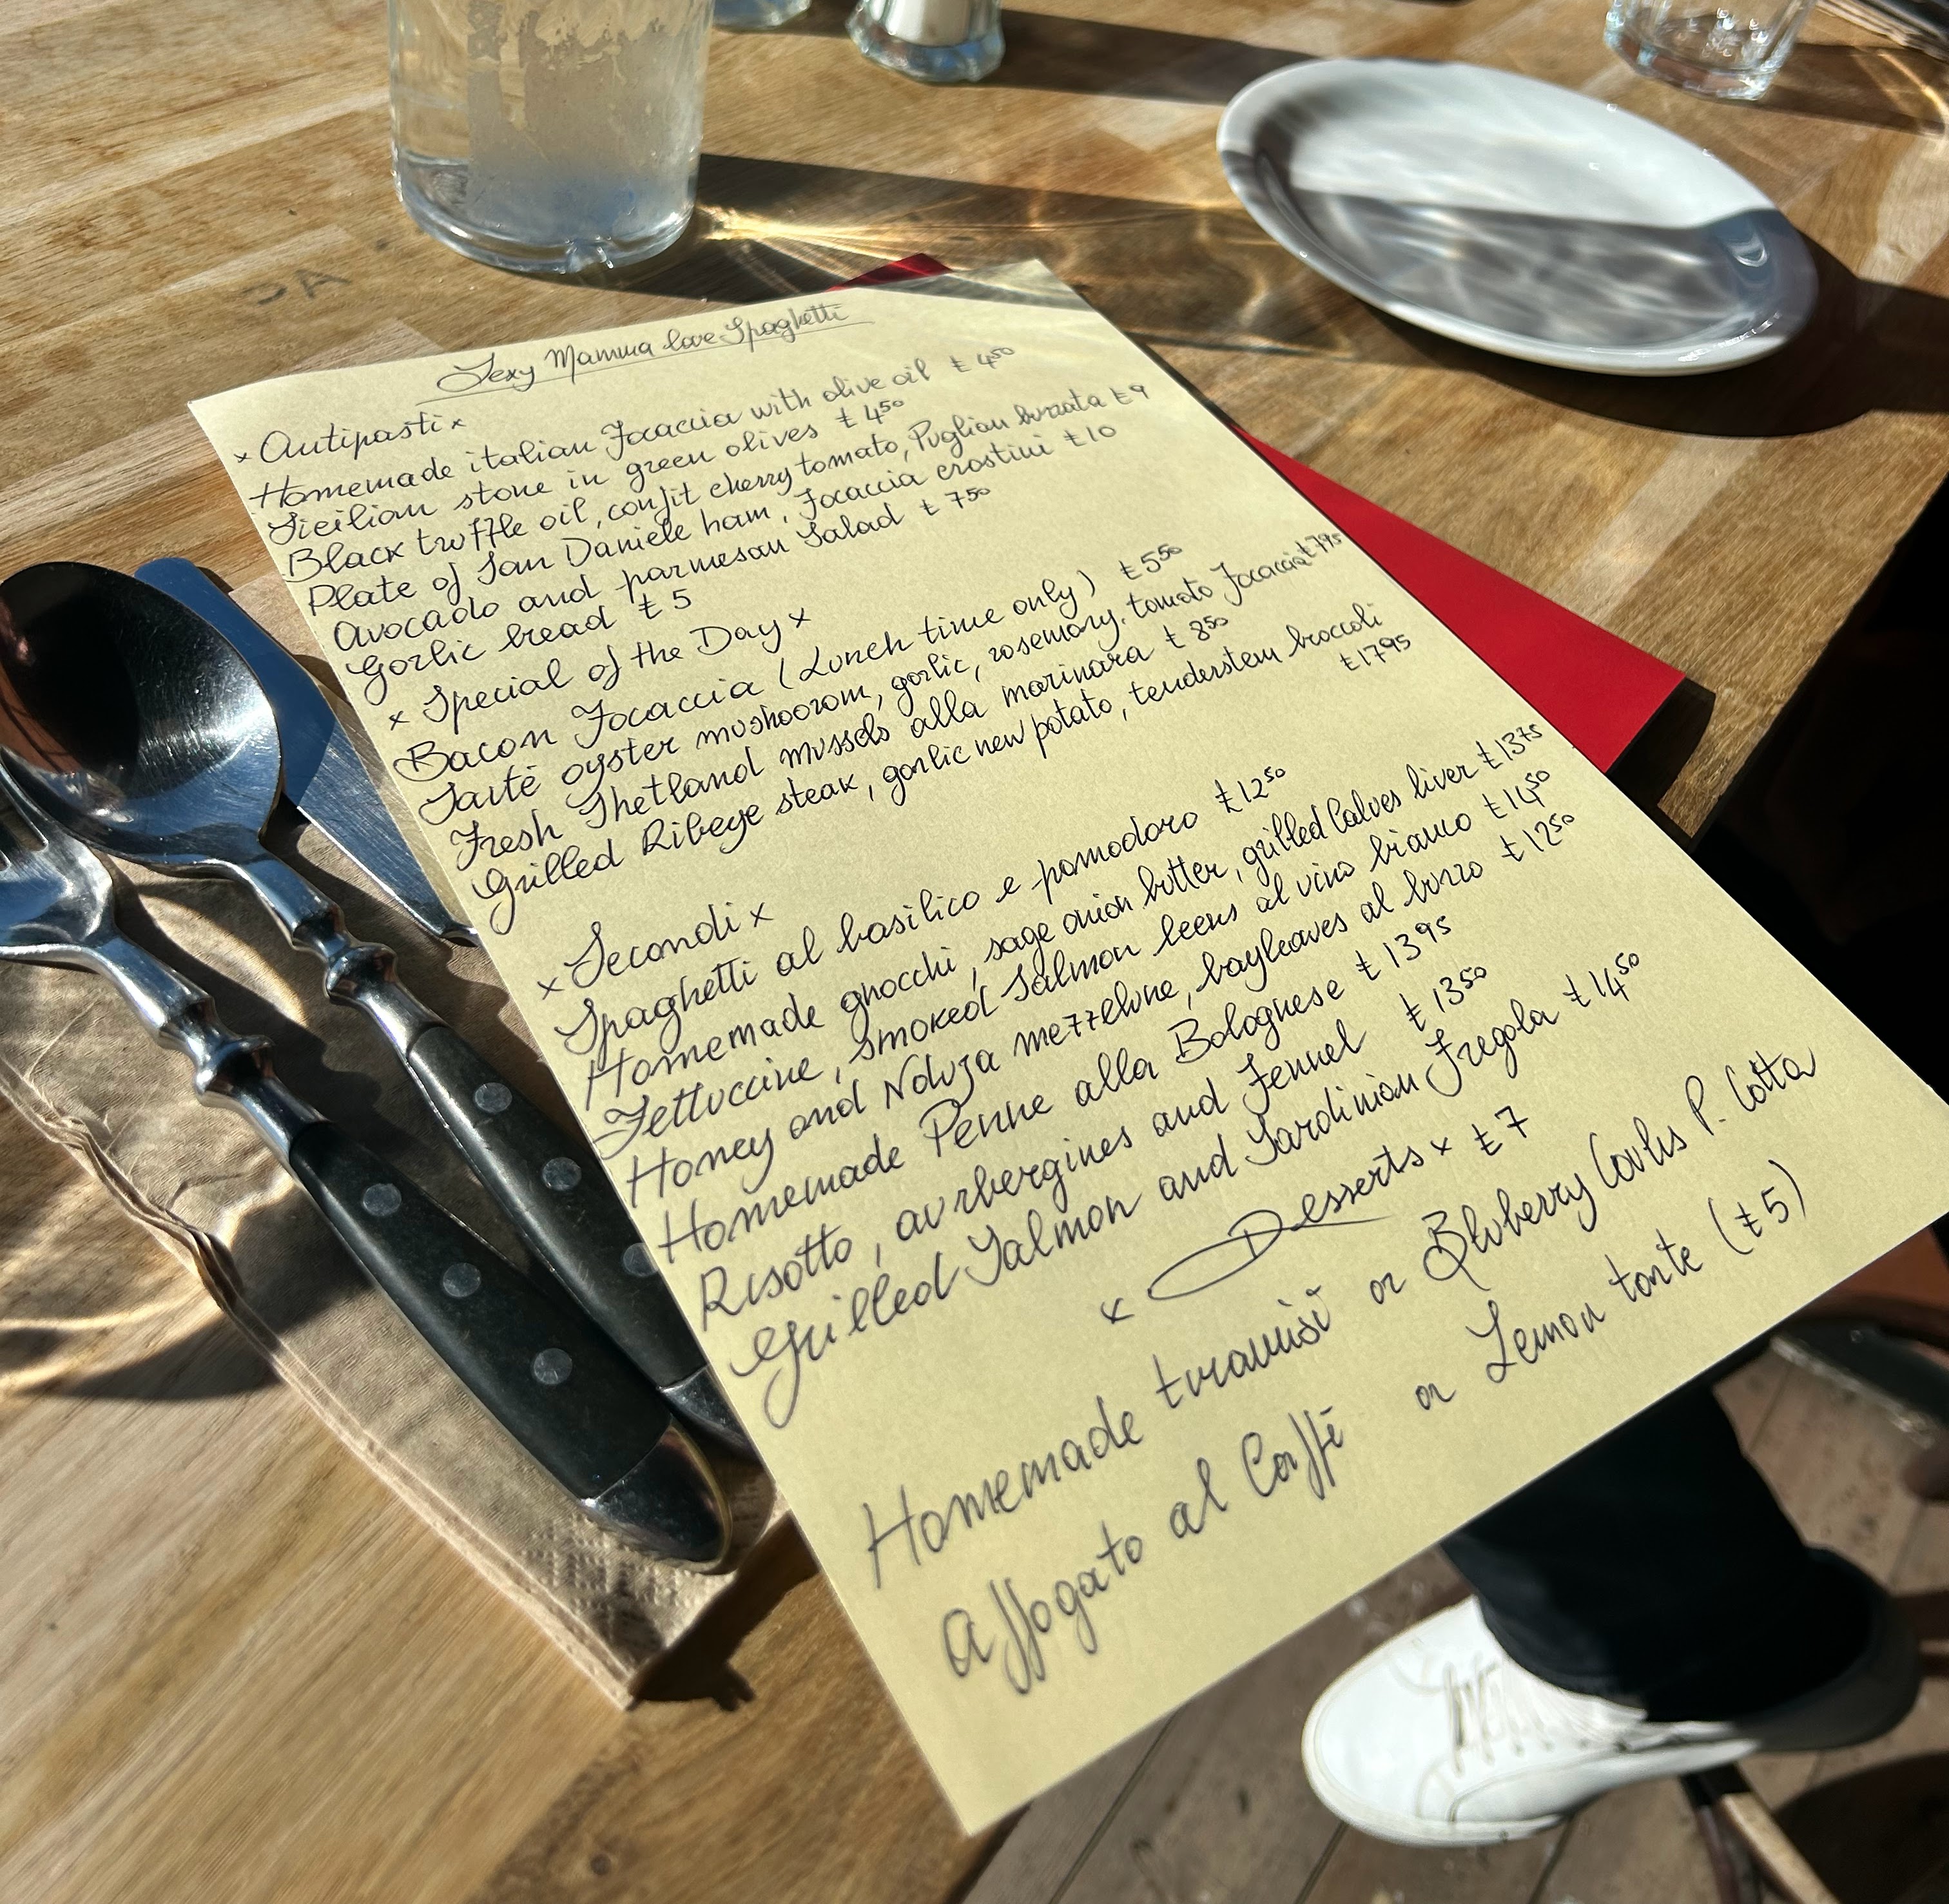 Sexy Mamma love Spaghetti
x Antipasti x
Homemade italian Focaccia with olive oil £ 4.50
Sicilian stone in green olives £ 4.50
Black truffle oil, confit cherry tomato, Puglian burrata £9
Plate of San Daniele ham, focaccia crostini £10
Avocado and parmesan Salad £ 7.50
Garlic bread £ 5
x Special of the Day x
Bacon Focaccia (Lunch time only) £5.50
Sauté oyster mushoorom, garlic, rosemary, tomato focaccia £7.95
Fresh Shetland mussels alla marinara £ 8.50
Grilled Ribeye steak, garlic new potato, tenderstem broccoli
£17.95
x Secondi x
Spaghetti al basilico e pomodoro £12.50
Homemade gnocchi, sage onion butter, grilled Calves liver £13.75
Fettuccine, smoked Salmon leens al vino bianco £14.50
Honey and Nduja mezzelune, bayleaves al burro £12.50
Homemade Penne alla Bolognese £ 13.95
Risotto, aurbergines and Fennel £ 13.50
Grilled Salmon and Sardinian Fregola £14.50
x Desserts x £7
Homemade tiramisù or Bluberry Coulis P. Cotta
Affogato al Caffè or Lemon tarte (£5)